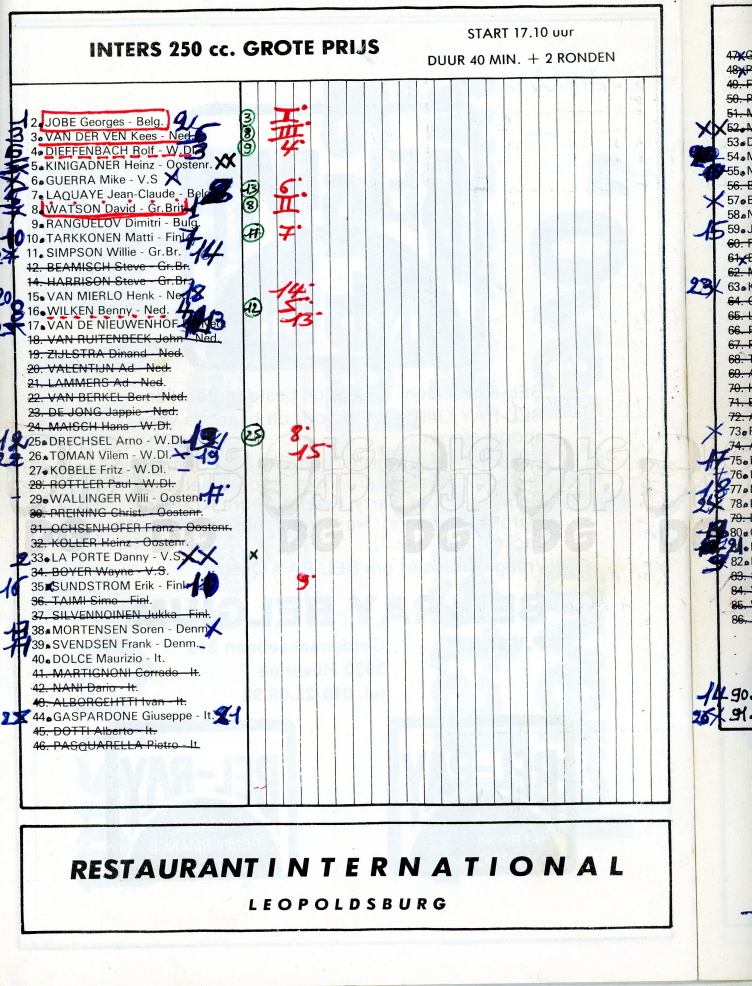 INTERS 250 cc. GROTE PRIJS
START 17.10 uur
DUUR 40 MIN. + 2 RONDEN
1 2. JOBE Georges - Belg. 2 3 I
3 3. VAN DER VEN Kees - Ned. 6 8 III
4. DIEFFENBACH Rolf - W.DI. 3 9 4
5. KINIGADNER Heinz - Oostenr. XX
6. GUERRA Mike - V.S X
7. LAQUAYE Jean-Claude - Belg. 13 6
8. WATSON David - Gr.Brit. 1 8 II
9. RANGUELOV Dimitri - Bulg.
10. TARKKONEN Matti - Finl. 7 11 7
11. SIMPSON Willie - Gr.Br. 14
12. BEAMISCH Steve - Gr.Br.
14. HARRISON Steve - Gr.Br.
20 15. VAN MIERLO Henk - Ned. 18 14
8 16. WILKEN Benny - Ned. 4 12 5
17. VAN DE NIEUWENHOF Ned. 13 13
18. VAN RUITENBEEK John - Ned.
19. ZIJLSTRA Dinand - Ned.
20. VALENTIJN Ad - Ned.
21. LAMMERS Ad - Ned.
22. VAN BERKEL Bert - Ned.
23. DE JONG Jappie - Ned.
24. MAISCH Hans - W.DI.
12 25. DRECHSEL Arno - W.DI. 25 8
22 26. TOMAN Vilem - W.DI. 19 15
27. KOBELE Fritz - W.DI.
28. ROTTLER Paul - W.DI.
29. WALLINGER Willi - Oostenr. 17
30. PREINING Christ. - Oostenr.
31. OCHSENHOFER Franz - Oostenr.
32. KOLLER Heinz - Oostenr.
2 33. LA PORTE Danny - V.S. XX x
34. BOYER Wayne - V.S.
16 35. SUNDSTROM Erik - Finl. 10 9
36. TAIMI Simo - Finl.
37. SILVENNOINEN Jukka - Finl.
38. MORTENSEN Soren - Denm. X
11 39. SVENDSEN Frank - Denm.
40. DOLCE Maurizio - It.
41. MARTIGNONI Corrado - It.
42. NANI Dario - It.
43. ALBORGEHTTI Ivan - It.
44. GASPARDONE Giuseppe - It. 21
45. DOTTI Alberto - It.
46. PASQUARELLA Pietro - It.
RESTAURANT INTERNATIONAL
LEOPOLDSBURG
47.
48.
49.
50.
51.
52.
53.
54.
55.
56.
57.
15 59.
60.
61.
62.
23 63.
64.
65.
66.
67.
68.
69.
70.
71.
72.
73.
74.
17 75.
76.
18 77.
78.
79.
80.
82.
83.
84.
85.
86.
14 90.
91.